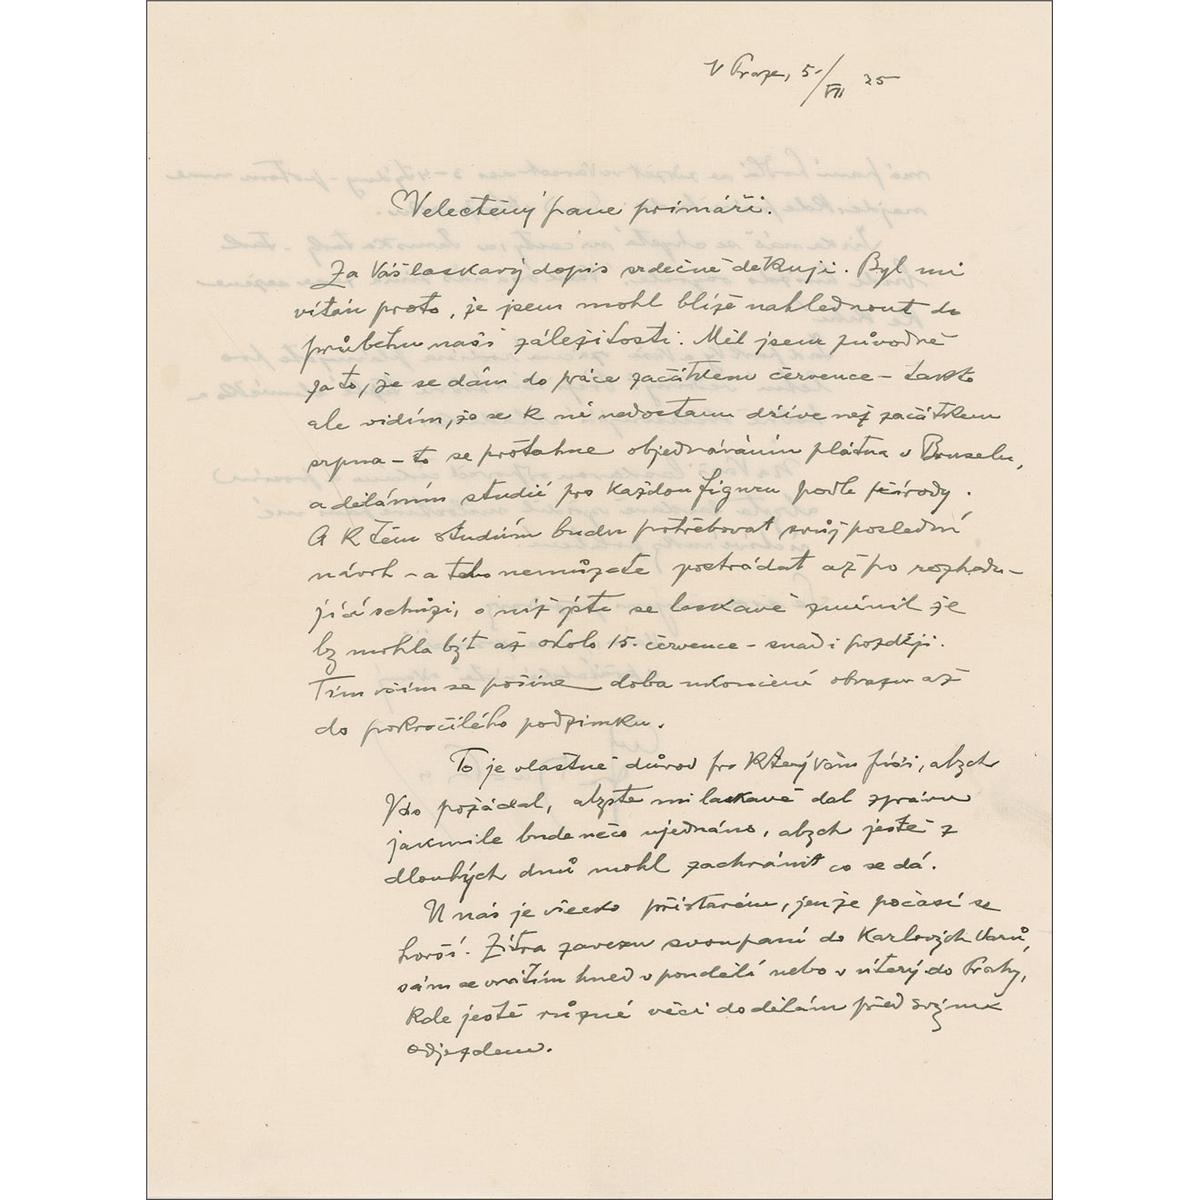 V Praze, 5/VII 25
Velectěný pane primáři.
Za Váš laskavý dopis srdečně děkuji. Byl mi
vítán proto, že jsem mohl blíže nahlédnout do
průběhu naší záležitosti. Měl jsem původně
za to, že se dám do práce začátkem července – takto
ale vidím, že se k ní nedostanu dříve než začátkem
srpna – to se protahne objednáváním plátna v Bruselu,
a děláním studií pro každou figuru podle přírody.
A k těm studiím budu potřebovat svůj poslední
návrh – a toho nemůžete postrádat až po rozhodu-
jící schůzi, o níž jste se laskavě zmínil že
by mohla být až okolo 15. července – snad i později.
Tím vším se pošine doba ukončení obrazu až
do pokročilého podzimku.
To je vlastně důvod pro který Vám píši, abych
Vás požádal, abyste mi laskavě dal zprávu
jakmile bude něco ujednáno, abych ještě z
dlouhých dnů mohl zachránit co se dá.
U nás je všecko při starém, jenže počasí se
horší. Zítra zavezu svou paní do Karlových Varů,
sám se vrátím hned v pondělí nebo v úterý do Prahy,
kde ještě různé věci dodělám před svým
odjezdem.